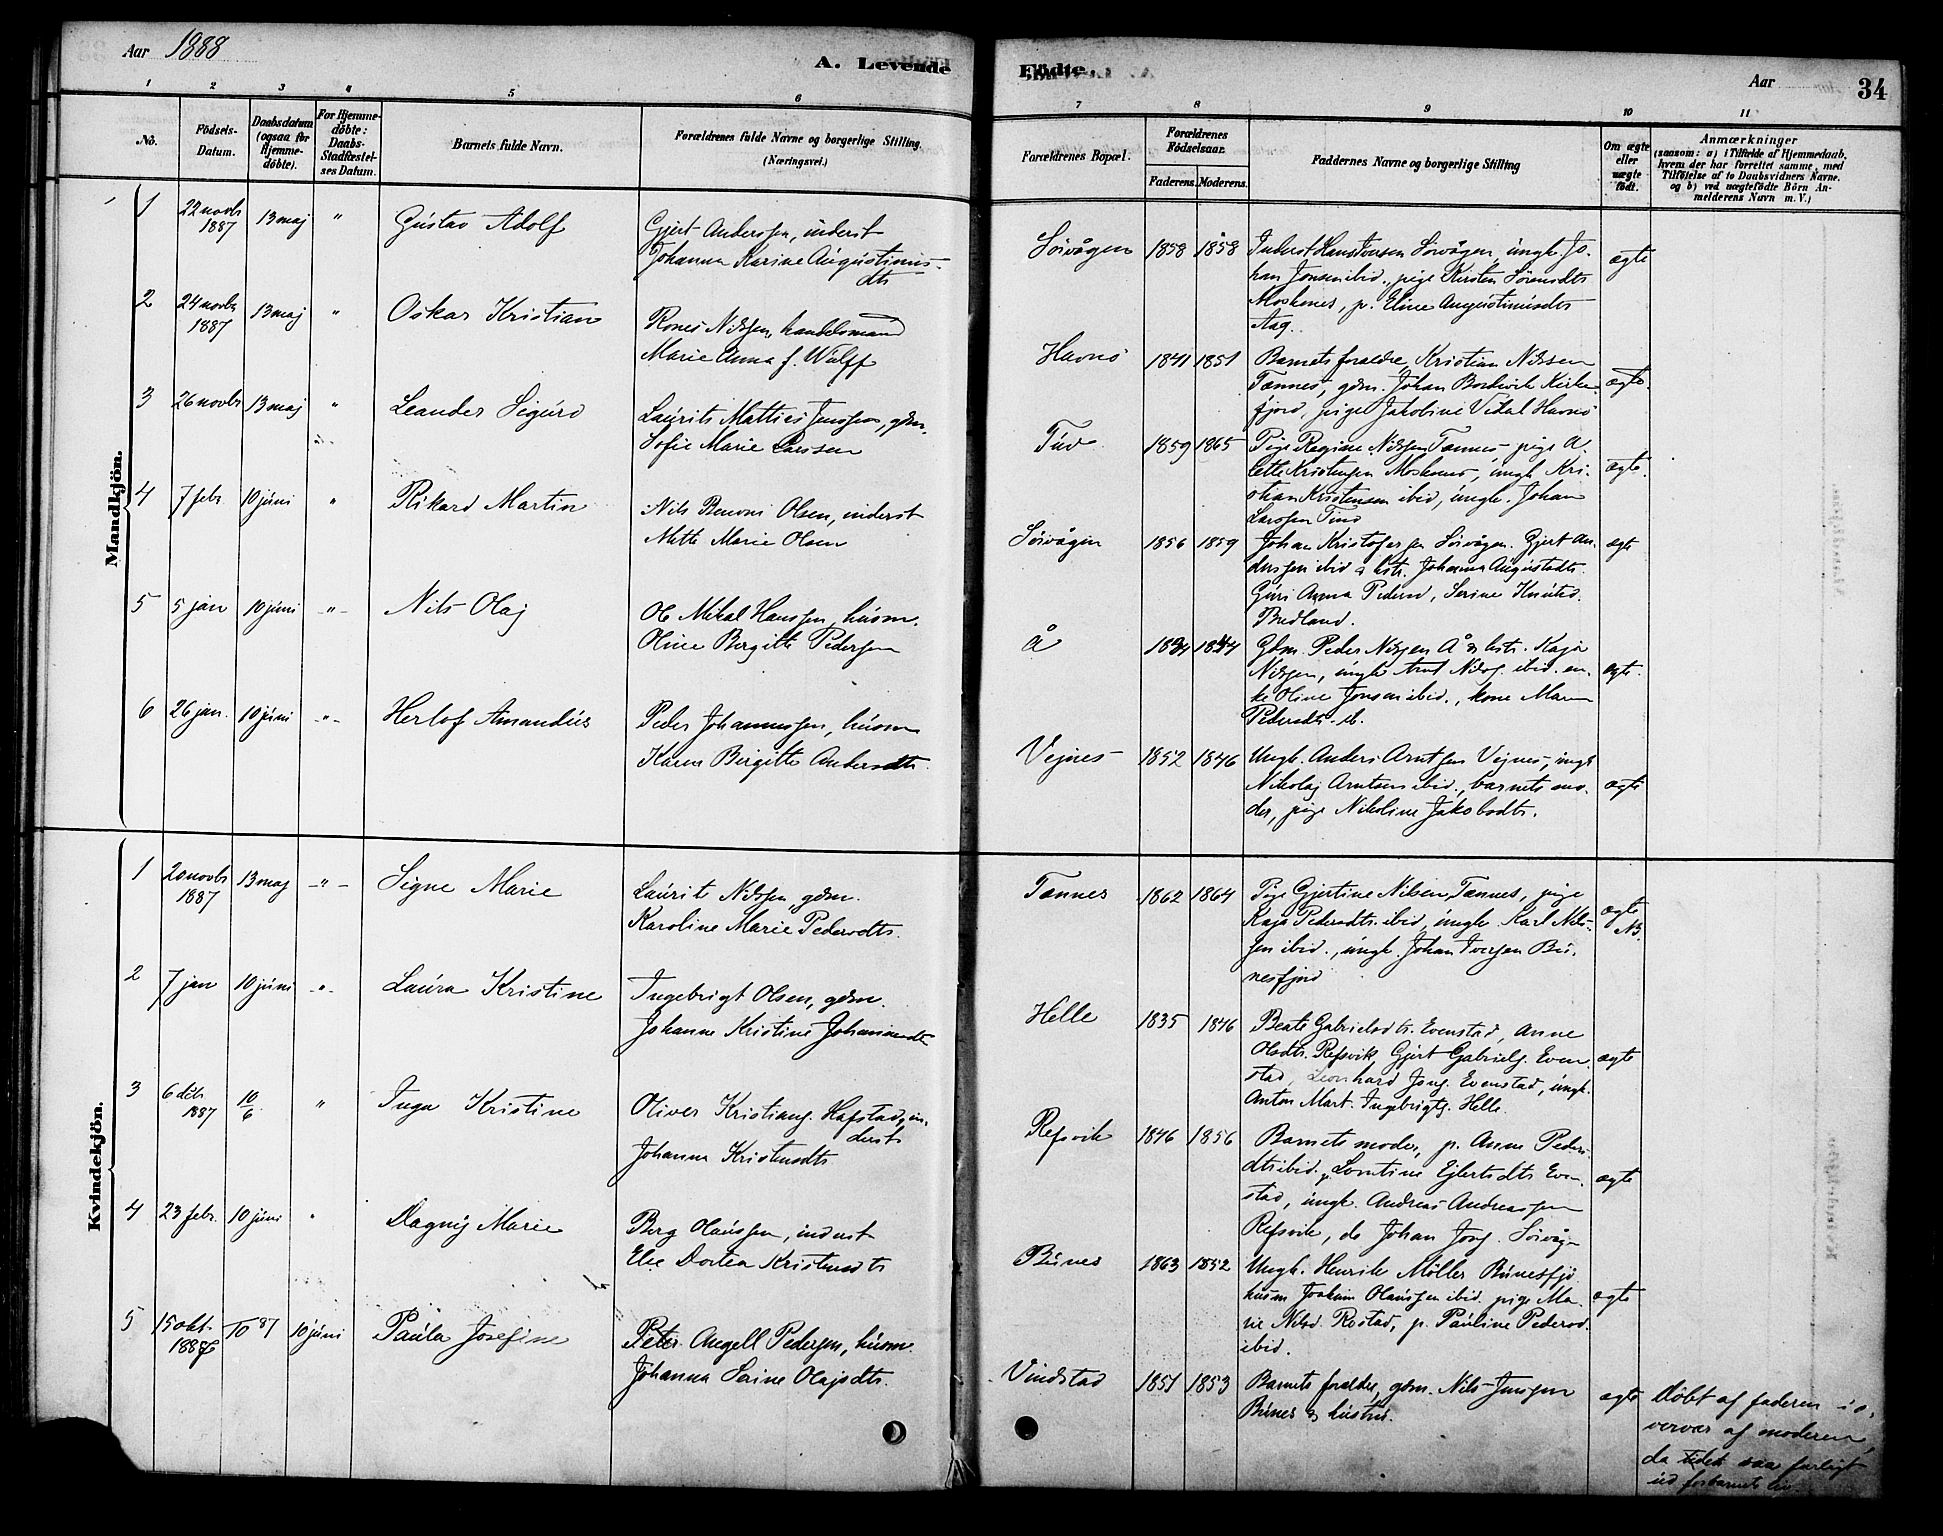 Aar 1888
A. Levende
Fødte.
Aar
34
1 2 3 4 5 6
7 8 9 10 11
No.
Fødsels-Datum.
Daabsdatum (ogsaa for Hjemme-døbte).
For Hjemme-døbte: Daabs-Stadfæstel-ses Datum.
Barnets fulde Navn.
Forældrenes fulde Navne og borgerlige Stilling. (Næringsvei.)
Forældrenes Bopæl.
Forældrenes Fødselsaar.
Faderens. Moderens.
Faddernes Navne og borgerlige Stilling
Om ægte eller uægte født.
Anmærkninger
(saasom: a) i Tilfælde af Hjemmedaab,
hvem der har forrettet samme, med
Tilføielse af to Daabsvidners Navne.
og b) ved uægtefødte Børn An-
melderens Navn m.V.)
Mandkjön.
1 22 novbr 1887 13 maj " Gustav Adolf
Gjert Anderssen, inderst
Johanna Karine Augustinus-
dtr
Sörvågen 1858 1858
Inderst Hans Jonsen Sörvågen, ungk. Jo-
han Jonsen ibid., pige Kirsten Sörensdtr
Moskenes, p. Eline Augustinusdtr
Aag.
ægte
2 24 novbr 1887 13 maj " Oskar Kristian
Rones Nilssen, handelsmand
Marie Anna f. Wulff
Havnö 1841 1851
Barnets forældre, Kristian Nilssen
Tennes, gdm. Johan Bordevik Kirke-
fjord, pige Jakobine Vidal Havnö
ægte.
3 26 novbr 13 maj " Leander Sigurd
Laurits Mattias Jenssen, gdm.
Sofie Marie Larssen
Tuv 1859 1865
Pige Regine Nilssen Tennes, pige A-
lette Kristensen Moskenes, ungk. Kri-
stian Kristensen ibid, ungk. Johan
Larssen Tuv
ægte.
4 7 febr. 10 juni " Rikard Martin
Nils Benoni Olsen, inderst
Mette Marie Olsen
Sörvågen 1856 1859
Johan Kristofersen Sörvågen. Gjert An-
derssen ibid & hstr. Johanna Augustsdtr.
Guri Anna Pedersd, Serine Knutsd.
Bredland.
ægte
5 5 jan 10 juni -"- Nils Olaj
Ole Mikal Hanssen, husm.
Oline Bergitte Pedersen
Å 1834 1844
Gdm. Peder Nilssen Å & hstr. Kaja
Nilssen, ungk. ibid. en-
ke Oline Jensen ibid., kone Maren
Pedersdtr. ib.
ægte.
6 26 jan. 10 juni -"- Herlof Amandus
Peder Johannessen, husm
Karen Birgitte Andersdtr.
Vejnes 1852 1846
Ungk. Anders Arntsen Vejnes, ungk
Nikolaj Arntsen ibid., barnets mo-
der, pige Nikoline Jakobsdtr.
ægte
Kvindekjön.
1 20 novbr 1887 13 maj -"- Signe Marie
Laurits Nilssen, gdm.
Karoline Marie Pedersdtr.
Tennes 1862 1864
Pige Gjertine Nilsen Tennes, pige
Kaja Pedersdtr. ibid, ungk. Karl Nils-
sen ibid., ungk. Johan Iversen Bu-
nesfjord
ægte
NB.
2 7 jan 10 juni -"- Laura Kristine
Ingebrigt Olsen, gdm.
Johanne Kristine Johannesdtr
Helle 1835 1846
Beate Gabrielsdtr. Evenstad, Anne
Olsdtr. Refsvik, Gjert Gabriels. Even-
stad, Leonhard Jons. Evenstad, ungk.
Anton Mart. Ingebrigts. Helle.
ægte
3 6 dcbr 1887 10/6 " Inga Kristine
Oliver Kristians. Hafstad, in-
derst
Johanna Kristensdtr
Refsvik 1846 1856
Barnets moder, p. Anne Peders-
dtr ibid, p. Lorntine Ejlertsdtr Even-
stad, ungk. Andreas Andreassen
Refsvik, do Johan Jons. Sörvåge
ægte
4 23 febr. 10 juni " Dagny Marie
Berg Olaussen, inderst
Else Dortea Kristensdtr
Bunes 1863 1852
Ungk. Henrik Möller Bunesfjo
husm Joakim Olaussen ibid. pige Ma-
rie Nilsd Rostad, p. Pauline Pedersd.
ibid.
ægte
5 15 okt. 1886 /10 87 10 juni Paula Josefine
Peter Angell Pedersen, husm.
Johanna Serine Olajsdtr.
Vindstad 1851 1853
Barnets forældre, gdm. Nils Jenssen
Bunes & hustru.
ægte
Döbt af faderen i o-
vervær af moderen,
da tidet saa farligt
ud for barnets liv.